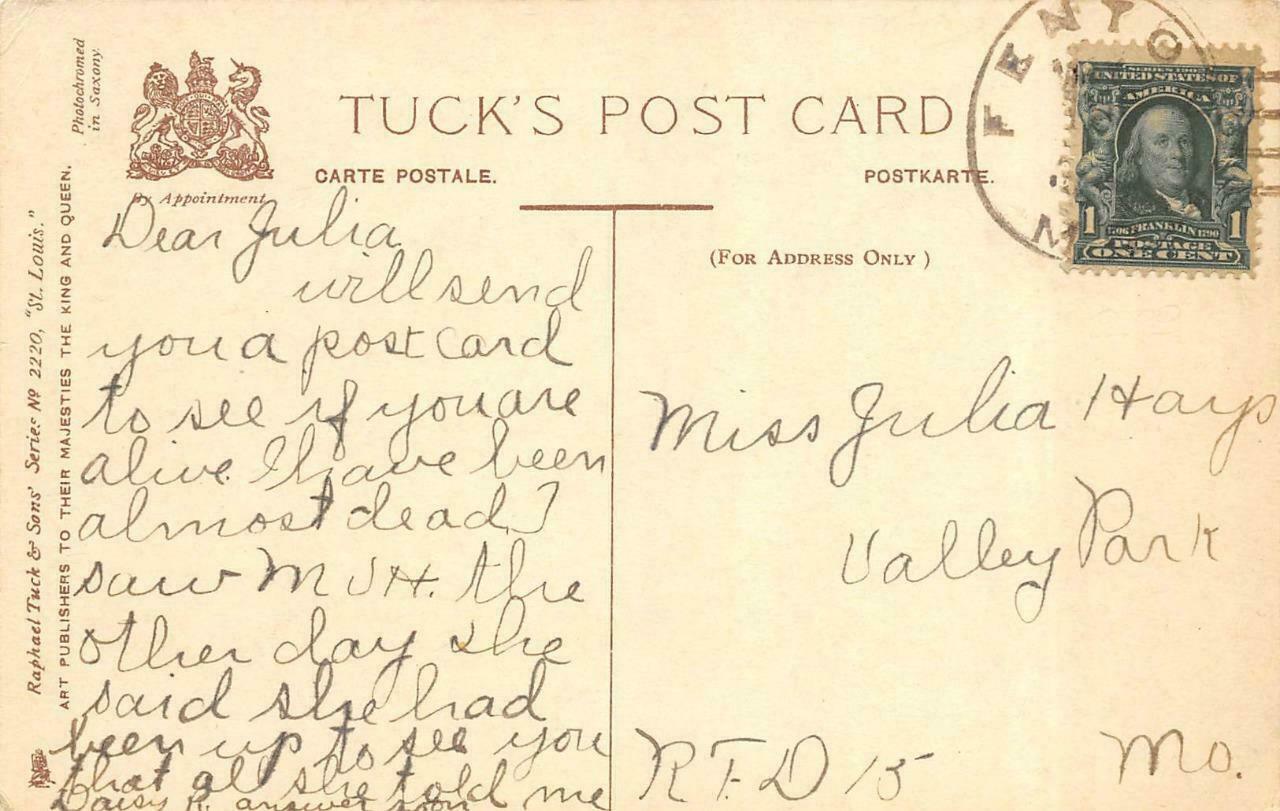 Photochromed
in Saxony.
Raphael Tuck & Sons' Series No 2220, "St. Louis."
ART PUBLISHERS TO THEIR MAJESTIES THE KING AND QUEEN.
By Appointment
TUCK'S POST CARD
CARTE POSTALE.
POSTKARTE.
(FOR ADDRESS ONLY)
FENTO
M
SERIES 1902
UNITED STATES OF
AMERICA
1706 FRANKLIN 1790
1 1
POSTAGE
ONE CENT
Dear Julia
will send
you a post card
to see if you are
alive. I have been
almost dead. I
saw M J H. the
other day she
said she had
been up to see you
that al she told me
Daisy answer soon
Miss Julia Hays
Valley Park
R.F.D 15 Mo.